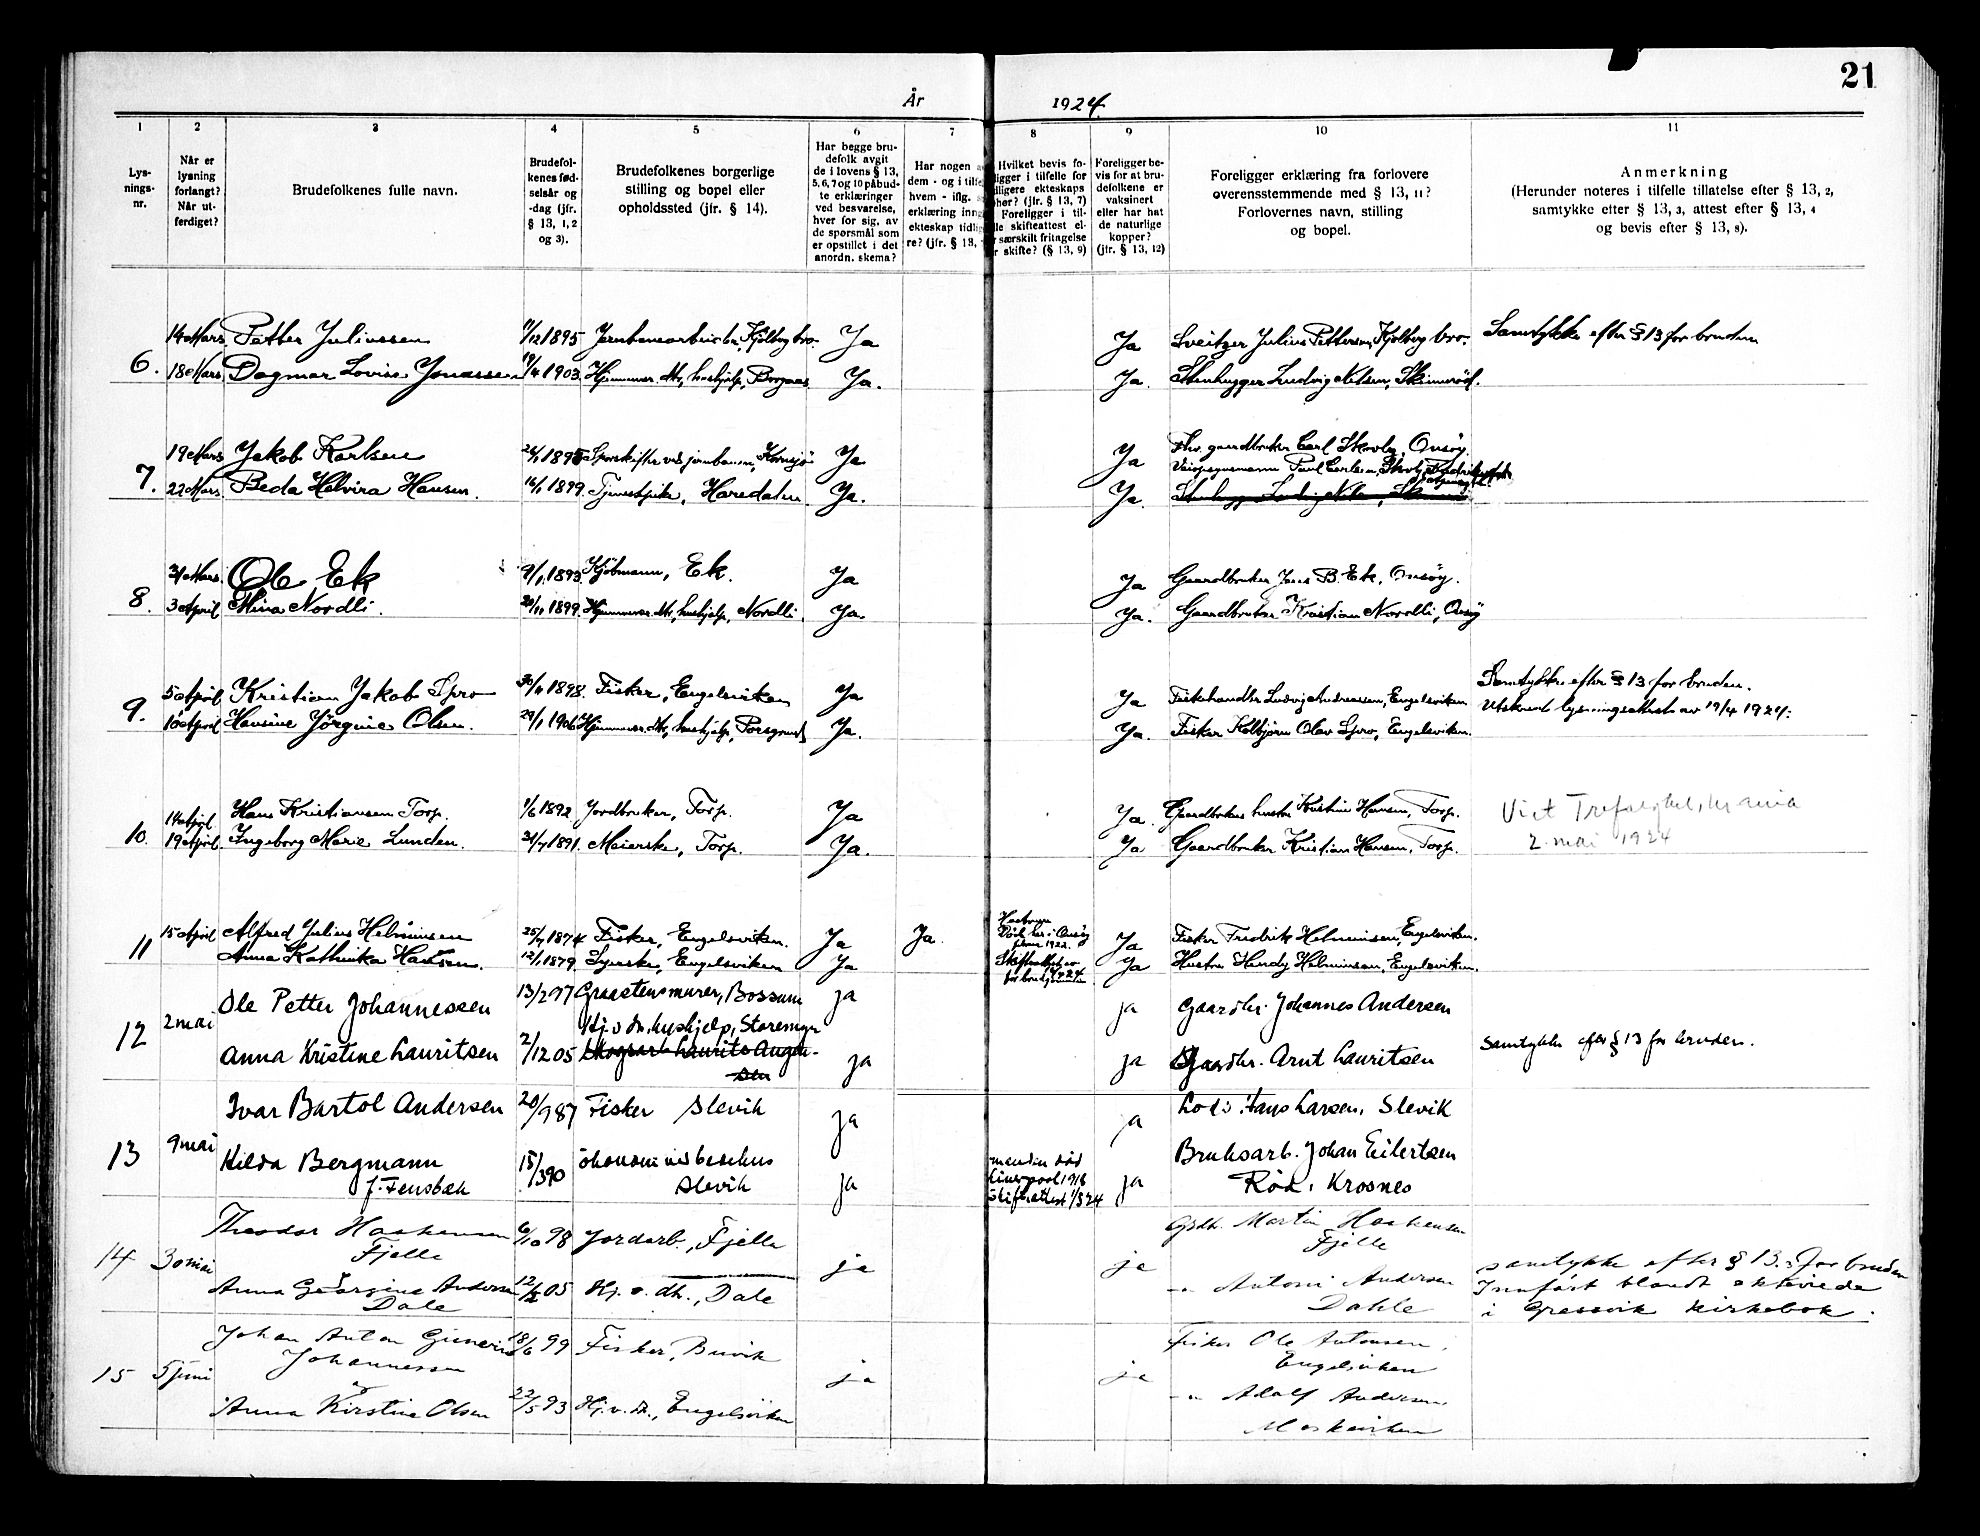 21
År 1924.
1 2 3 4 5 6 7 8 9 10 11
Lys-
nings-
nr.
Når er
lysning
forlangt?
Når ut-
ferdiget?
Brudefolkenes fulle navn.
Brudefol-
kenes fød-
selsår og
-dag (jfr.
§ 13, 1, 2
og 3).
Brudefolkenes borgerlige
stilling og bopel eller
opholdssted (jfr. § 14).
Har begge bru-
defolk avgit
de i lovens § 13,
5, 6, 7 og 10 påbud-
te erklæringer
ved besvarelse,
hver for sig, av
de spørsmål som
er opstillet i det
anordn. skema?
Har nogen a
dem - og i tilfe
hvem - iflg. s
erklæring inng
ekteskap tidlig
re? (jfr. § 13,
Hvilket bevis fo-
ligger i tilfelle for
dligere ekteskaps
phør? (jfr. § 13, 7)
Foreligger i til-
le skifteattest el-
r særskilt fritagelse
r skifte? (§ 13, 9)
Foreligger be-
vis for at bru-
defolkene er
vaksinert
eller har hat
de naturlige
kopper?
(jfr. § 13, 12)
Foreligger erklæring fra forlovere
overensstemmende med § 13, 11?
Forlovernes navn, stilling
og bopel.
Anmerkning
(Herunder noteres i tilfelle tillatelse efter § 13, 2,
samtykke efter § 13, 3, attest efter § 13, 4
og bevis efter § 13, 8).
14 Mars Petter Juliussen 11/12 1895 Jernbanearbeider, Kjølberg bro. Ja Ja Sveitzer Julius Pettersen, Kjølberg bro. Samtykke efter § 13 for bruden
6. 18 Mars Dagmar Lovise Jonassen 1903. Hjemmev. dtr, hushjelp, Borgaas Ja. Ja. Stenhugger Ludvig Nilsen, Skinnerød.
19 Mars Jakob Karlsen 1895 Sporskifter ved jernbanen, Kornsjø Ja Ja Fhv. gaardbruker Carl Skovly, Onsøy.
Paul Carlsen,
7. 22 Mars Beda Helvira Hansen. 16/1 1899. Tjenestpike, Haredalen Ja. Ja.
31 Mars Ole Ek 9/1 1893. Kjøbmann, Ek. Ja Ja Gaardbruker Jens B. Ek, Onsøy.
8. 3 April Mina Nordli. 20/11 1899. Hjemmev. dtr, hushjelp, Nordli. Ja. Ja. Gaardbruker Kristian Nordli, Onsøy
5 April Kristian Jakob Spro 1898. Fisker, Engelsviken Ja Ja Fiskehandler Ludvig Andreassen, Engelsviken Samtykke efter § 13 for bruden.
9. 10 April Hansine Jørgine Olsen. 29/1 1906 Hjemmev. dtr, hushjelp, Porsgrund Ja. Ja. Fisker Kolbjørn Olav Spro, Engelsviken. Utskrevet lysningsattest av 19/4 1924.
14 April Hans Kristiansen Torp. 1/6 1892. Jordbruker, Torp. Ja Ja. Gaardbrukers hustru Kristine Hansen, Torp. Viet Trefoldighet, Kr.ania
10. 19 April Ingeborg Marie Lunden. 1891. Meierske, Torp. Ja. Ja Gaardbruker Kristian Hansen, Torp. 2. mai 1924
15 April Alfred Julius Helminsen 25/7 1874 Fisker, Engelsviken. Ja Ja. Hustruen
Død her i Onsøy
1922. Ja Fisker Fredrik Helminsen, Engelsviken.
11 Anna Kathinka Hansen. 12/1 1879. Syerske, Engelsviken Ja Skifteattest av
for brudgommen Ja Hustru Hendy Helminsen, Engelsviken.
Ole Petter Johannessen 13/2 97 Graastensmurer, Bossum ja ja Gaardbr. Johannes Andersen
12 2 mai Hj. v. dtr, hushjelp, Storemyr
Anna Kristine Lauritsen 2/12 05 Skogsarb. Laurits Augen-
sen ja ja Gaardbr. Arnt Lauritsen samtykke efter § 13 for bruden.
Ivar Bartol Andersen 20/9 87 Fisker Slevik ja ja Lods Hans Larsen, Slevik
13 9 mai Hilda Bergmann 15/3 90 økonomi ved besehus Bruksarb. Johan Eilertsen
f. Tensbæk Slevik ja manden død
Liverpool 1918
Skifteattest 1/3 24 ja Rød, Krosnes
Theodor Haakensen 6/10 98 Jordarb., Fjelle Gdbr. Martin Haakensen
Fjelle Fjelle
14 30 mai ja ja samtykke efter § 13.3 for bruden
Anna Georgine Andersen 12/12 05 Hj. v. dtr., Dale -"- Antoni Andersen Innført blandt ekteviede
Dale Dahle i Gressvik kirkebok.
Johan Anton Gunerius 18/6 99 Fisker, Buvik Fisker Ole Antonsen,
Johannessen Engelsviken
15 5 juni ja ja
Anna Kirstine Olsen 22/5 93 Hj. v. dtr., Engelsviken -"- Adolf Andersen,